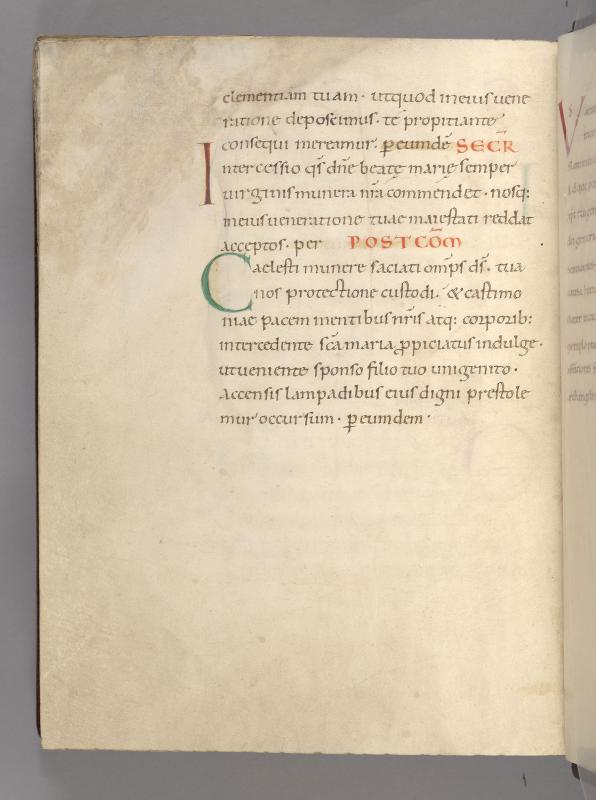 clementiam tuam · utquod ineius uene
ratione deposcimus · te propitiante
consequi mereamur · ꝑeumdē SECR̄
Intercessio q̄s dn̄e beatę marię semper
uirginis munera nr̄a commendet · nosq:
ineius ueneratione tuae maiestati reddat
acceptos · per POSTCŌM
Caelesti munere saciati omp̄s ds̄ · tua
nos protectione custodi · & castimo
niae pacem mentibus nr̄is atq: corporib:
intercedente sc̄a maria ꝓpiciatus indulge ·
ut ueniente sponso filio tuo unigenito ·
accensis lampadibus eius digni prestole
mur occursum · ꝑeumdem ·